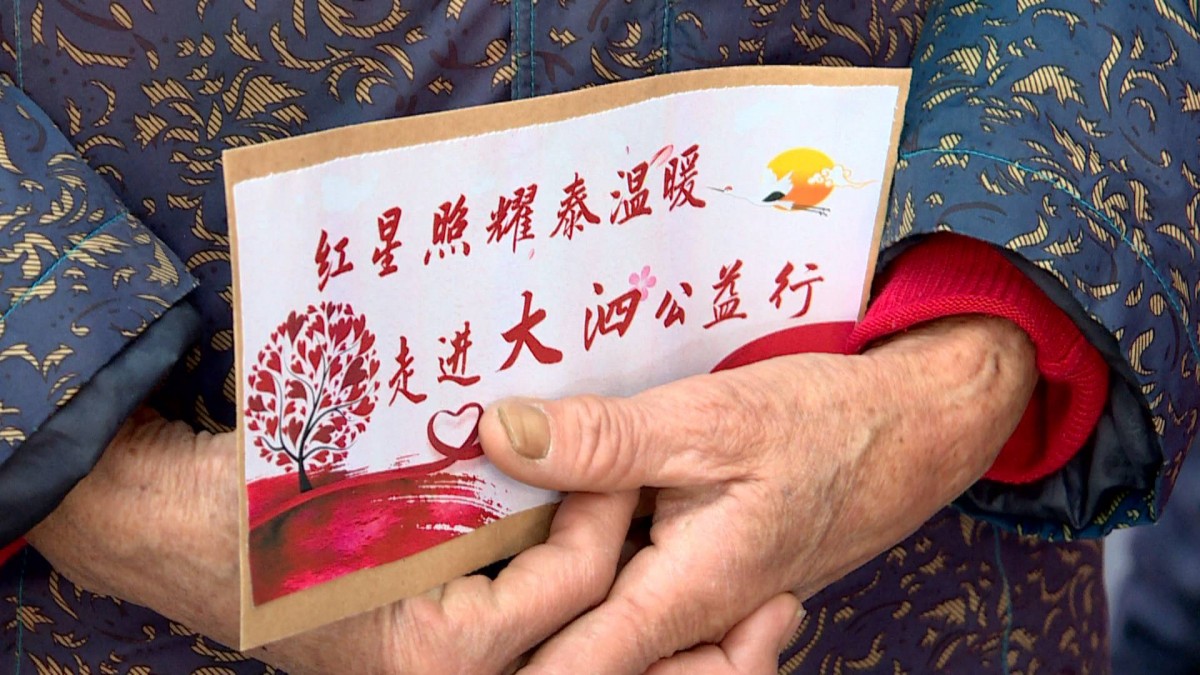 红星照耀泰温暖
走进大泗公益行